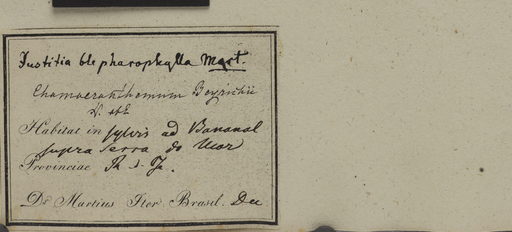 Justitia blepharophylla Mart.
Chamaeranthemum Beyrichii
N. et E
Habitat in sylvis ad Bananal
supra Serra do Mar
Provinciae R. d. J.
Dr Martius Iter Brasil. Dec